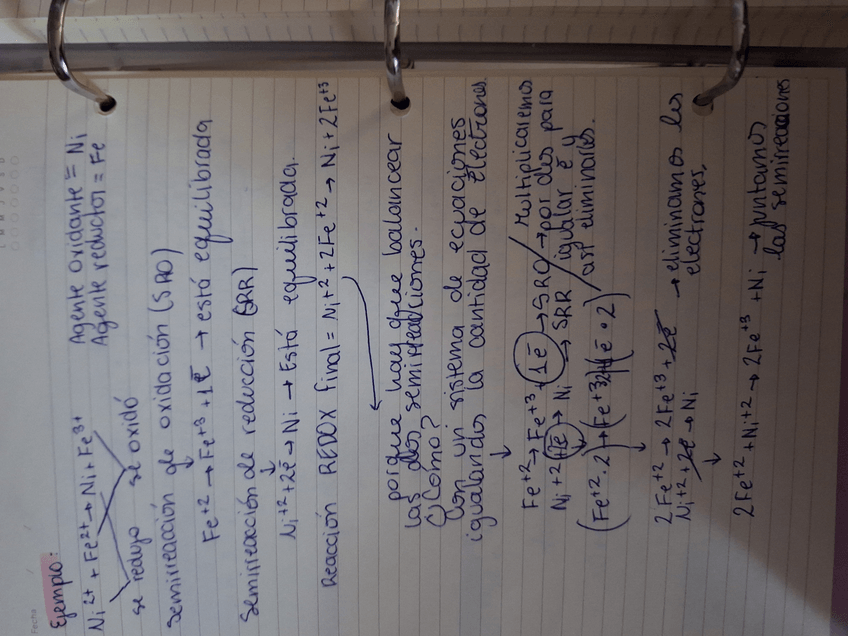 Fecha
Ejemplo:
Ni²⁺ + Fe²⁺ → Ni + Fe³⁺ Agente Oxidante = Ni
se redujo se oxidó Agente reductor = Fe
semirreacción de oxidación (SRO)
Fe⁺² → Fe⁺³ + 1e⁻ → está equilibrada
Semirreacción de reducción (SRR)
Ni⁺² + 2e⁻ → Ni → Está equilibrada.
Reacción REDOX final = Ni⁺² + 2Fe⁺² → Ni + 2Fe⁺³
porque hay que balancear
las dos semirreacciones.
¿Como?
Con un sistema de ecuaciones
igualando la cantidad de electrones.
Fe⁺² → Fe⁺³ + 1e⁻ → SRO → Multiplicaremos
Ni + 2 + 2e⁻ → Ni → SRR por dos para
igualar e⁻ y
(Fe⁺² · 2 → (Fe⁺³ · 2) + (1e⁻ · 2) así eliminarlos.
2Fe⁺² → 2Fe⁺³ + 2e⁻ → eliminamos los
Ni⁺² + 2e⁻ → Ni electrones.
2Fe⁺² + Ni⁺² → 2Fe⁺³ + Ni → juntamos
las semirreacciones